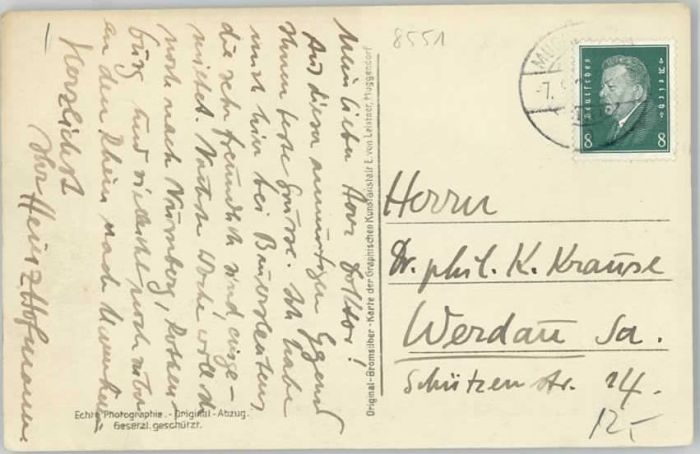 8551
Mein lieber Herr Doktor!
Aus dieser anmutigen Gegend
Ihnen feste Grüsse. Ich habe
mich hier bei Bauersleuten
die sehr freundlich sind, einge-
mietet. Nächste Woche will ich
noch nach Nürnberg, Rothen-
burg und vielleicht noch
an den Rhein nach
Herzlichst
Ihr Heinz Hofmann.
Echte Photographie. - Original - Abzug.
Gesetzl. geschützt.
Original-Bromsilber-Karte der Graphischen Kunstanstalt E. von Leistner, Muggendorf
MUGG
-7.
Deutsches Reich
8 8
Herrn
Dr. phil. K. Krause
Werdau Sa.
Schützenstr. 14.
12,-